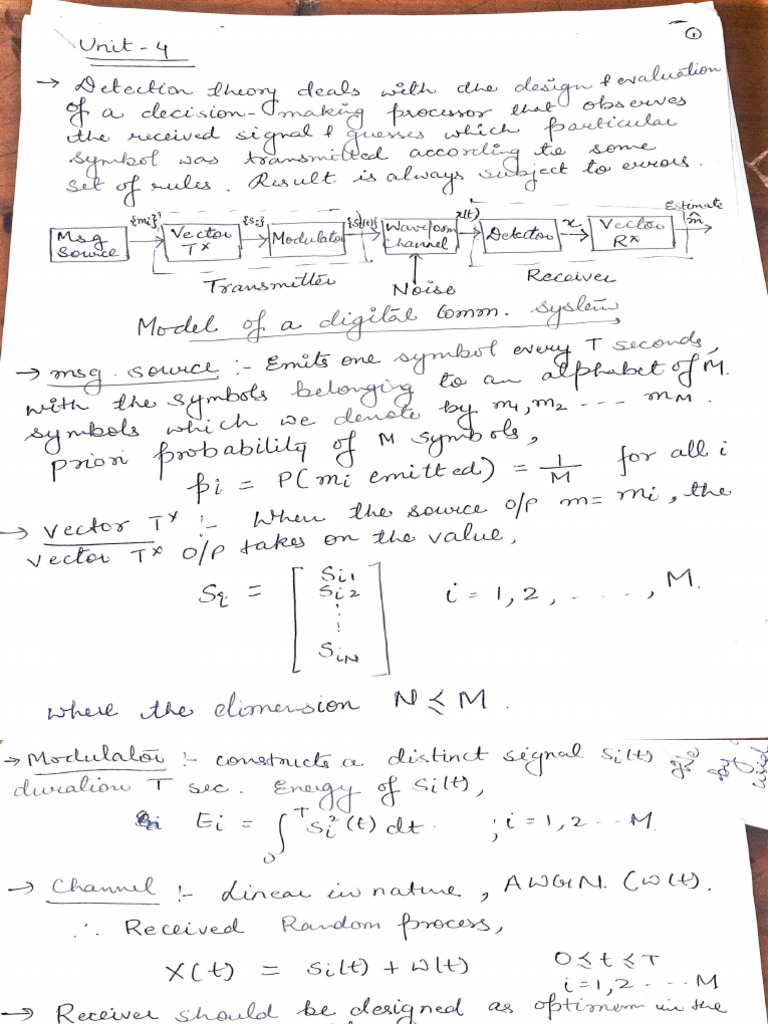 ①
Unit - 4
→ Detection theory deals with the design & evaluation
of a decision-making processor that observes
the received signal & guesses which particular
symbol was transmitted according to some
set of rules. Result is always subject to errors.
Msg Source {mi} Vector Tx {si} Modulator {si(t)} Waveform Channel x(t) Detector x Vector Rx Estimate m̂
Transmitter Noise Receiver
Model of a digital Comm. system
→ msg. source :- Emits one symbol every T seconds,
with the symbols belonging to an alphabet of M
symbols which we denote by m1, m2 --- mM.
Priori probability of M symbols,
pi = P(mi emitted) = 1/M for all i
→ Vector Tx :- When the source o/p m = mi, the
vector Tx O/P takes on the value,
Si = [ Si1 Si2 ⋮ SiN ] i = 1, 2, . . . . , M.
where the dimension N ≤ M.
→ Modulator :- constructs a distinct signal Si(t) of
duration T sec. Energy of Si(t),
Ei = ∫₀ᵀ Si²(t) dt. ; i = 1, 2 -- M.
→ Channel :- Linear in nature, AWGN. (W(t).
∴ Received Random process,
X(t) = Si(t) + W(t) 0 ≤ t ≤ T
i = 1, 2 - -- M
→ Receiver should be designed as optimum in the